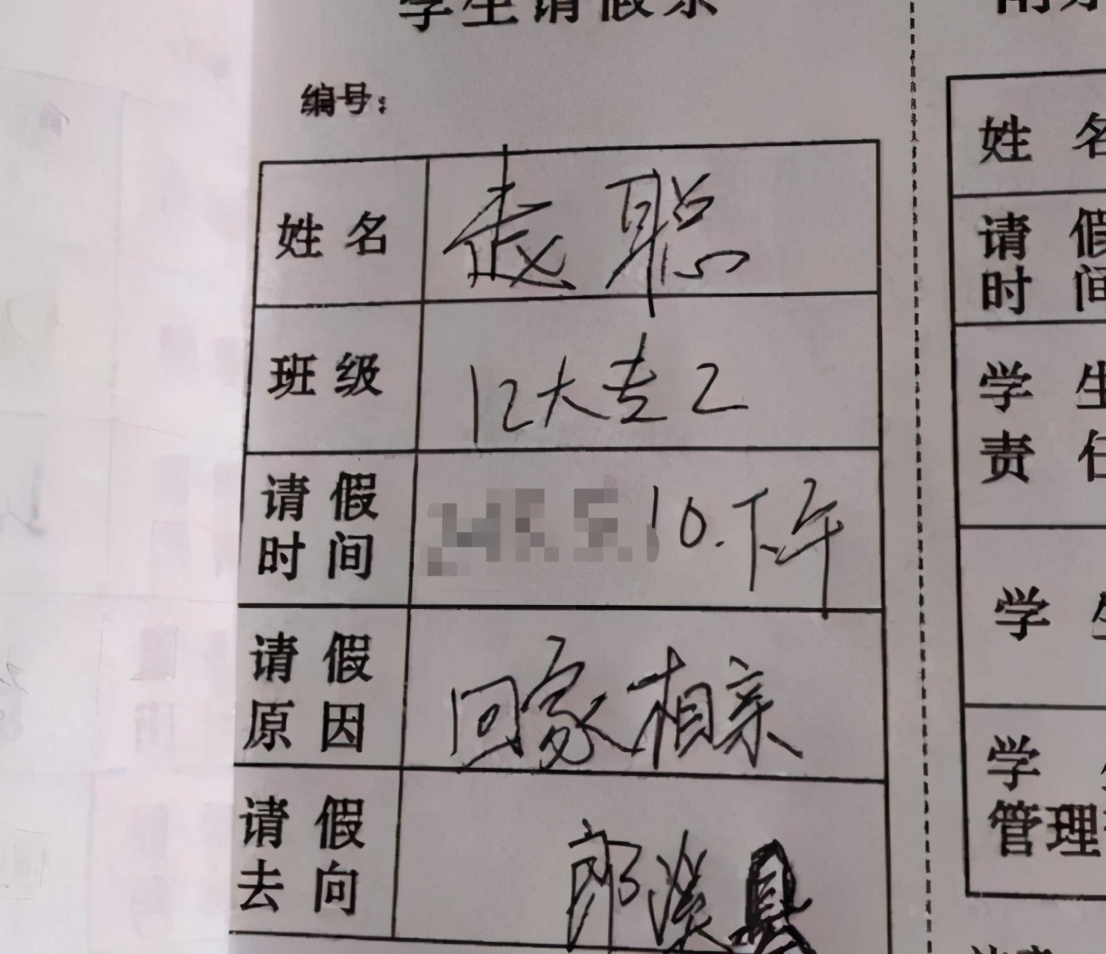 学生请假条
编号：
姓名 赵聪
班级 12大专2
请假时间 10.下午
请假原因 回家相亲
请假去向 郎溪县
姓名
请假
时间
学生
责任
学生
学
管理